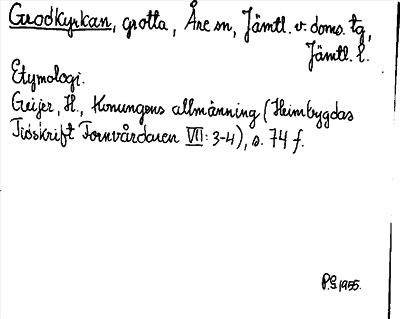 Grodkyrkan, grotta, Åre sn, Jämtl. v. doms. tg,
Jämtl. l.
Etymologi.
Geijer, H., Konungens allmänning (Heimbygdas
Tidskrift Fornvårdaren VII: 3-4), s. 74 f.
P.G 1955.